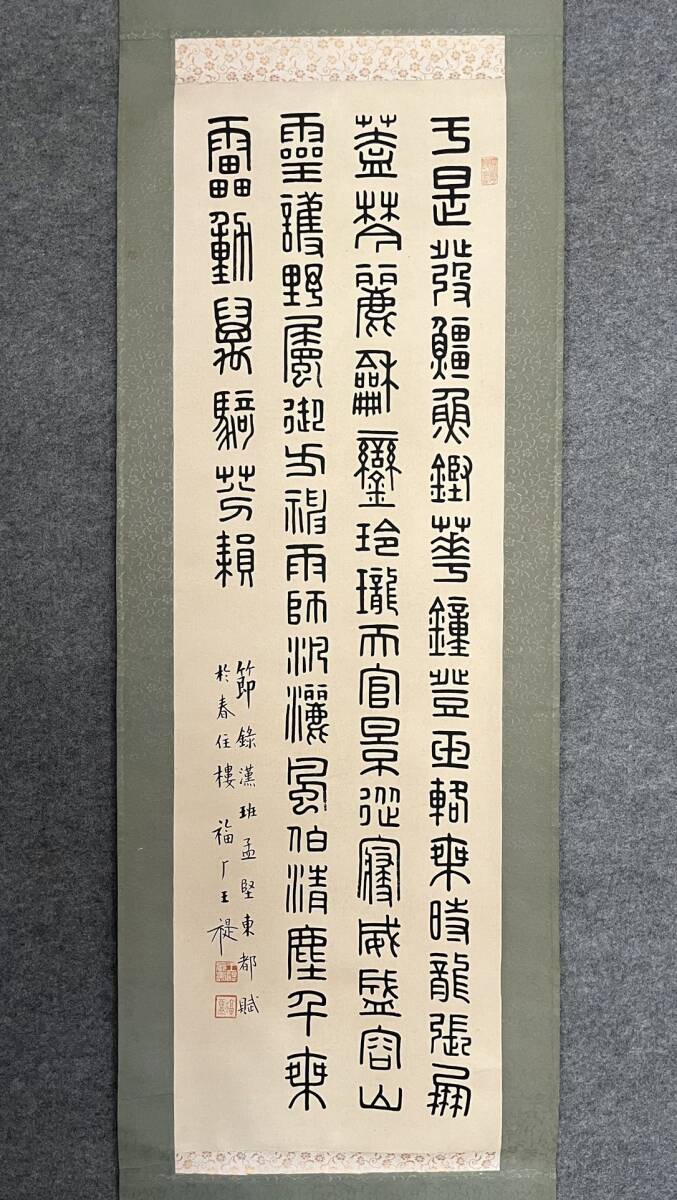 于是發䲔魚鏗華鐘登玉輅乘時龍張鳳
蓋棽麗龢鑾玲瓏天官景從寑威盛容山
靈護野屬御方神雨師汎灑風伯清塵千乘
靁動萬騎芬
節錄漢班孟堅東都賦
於春住樓 福厂王禔